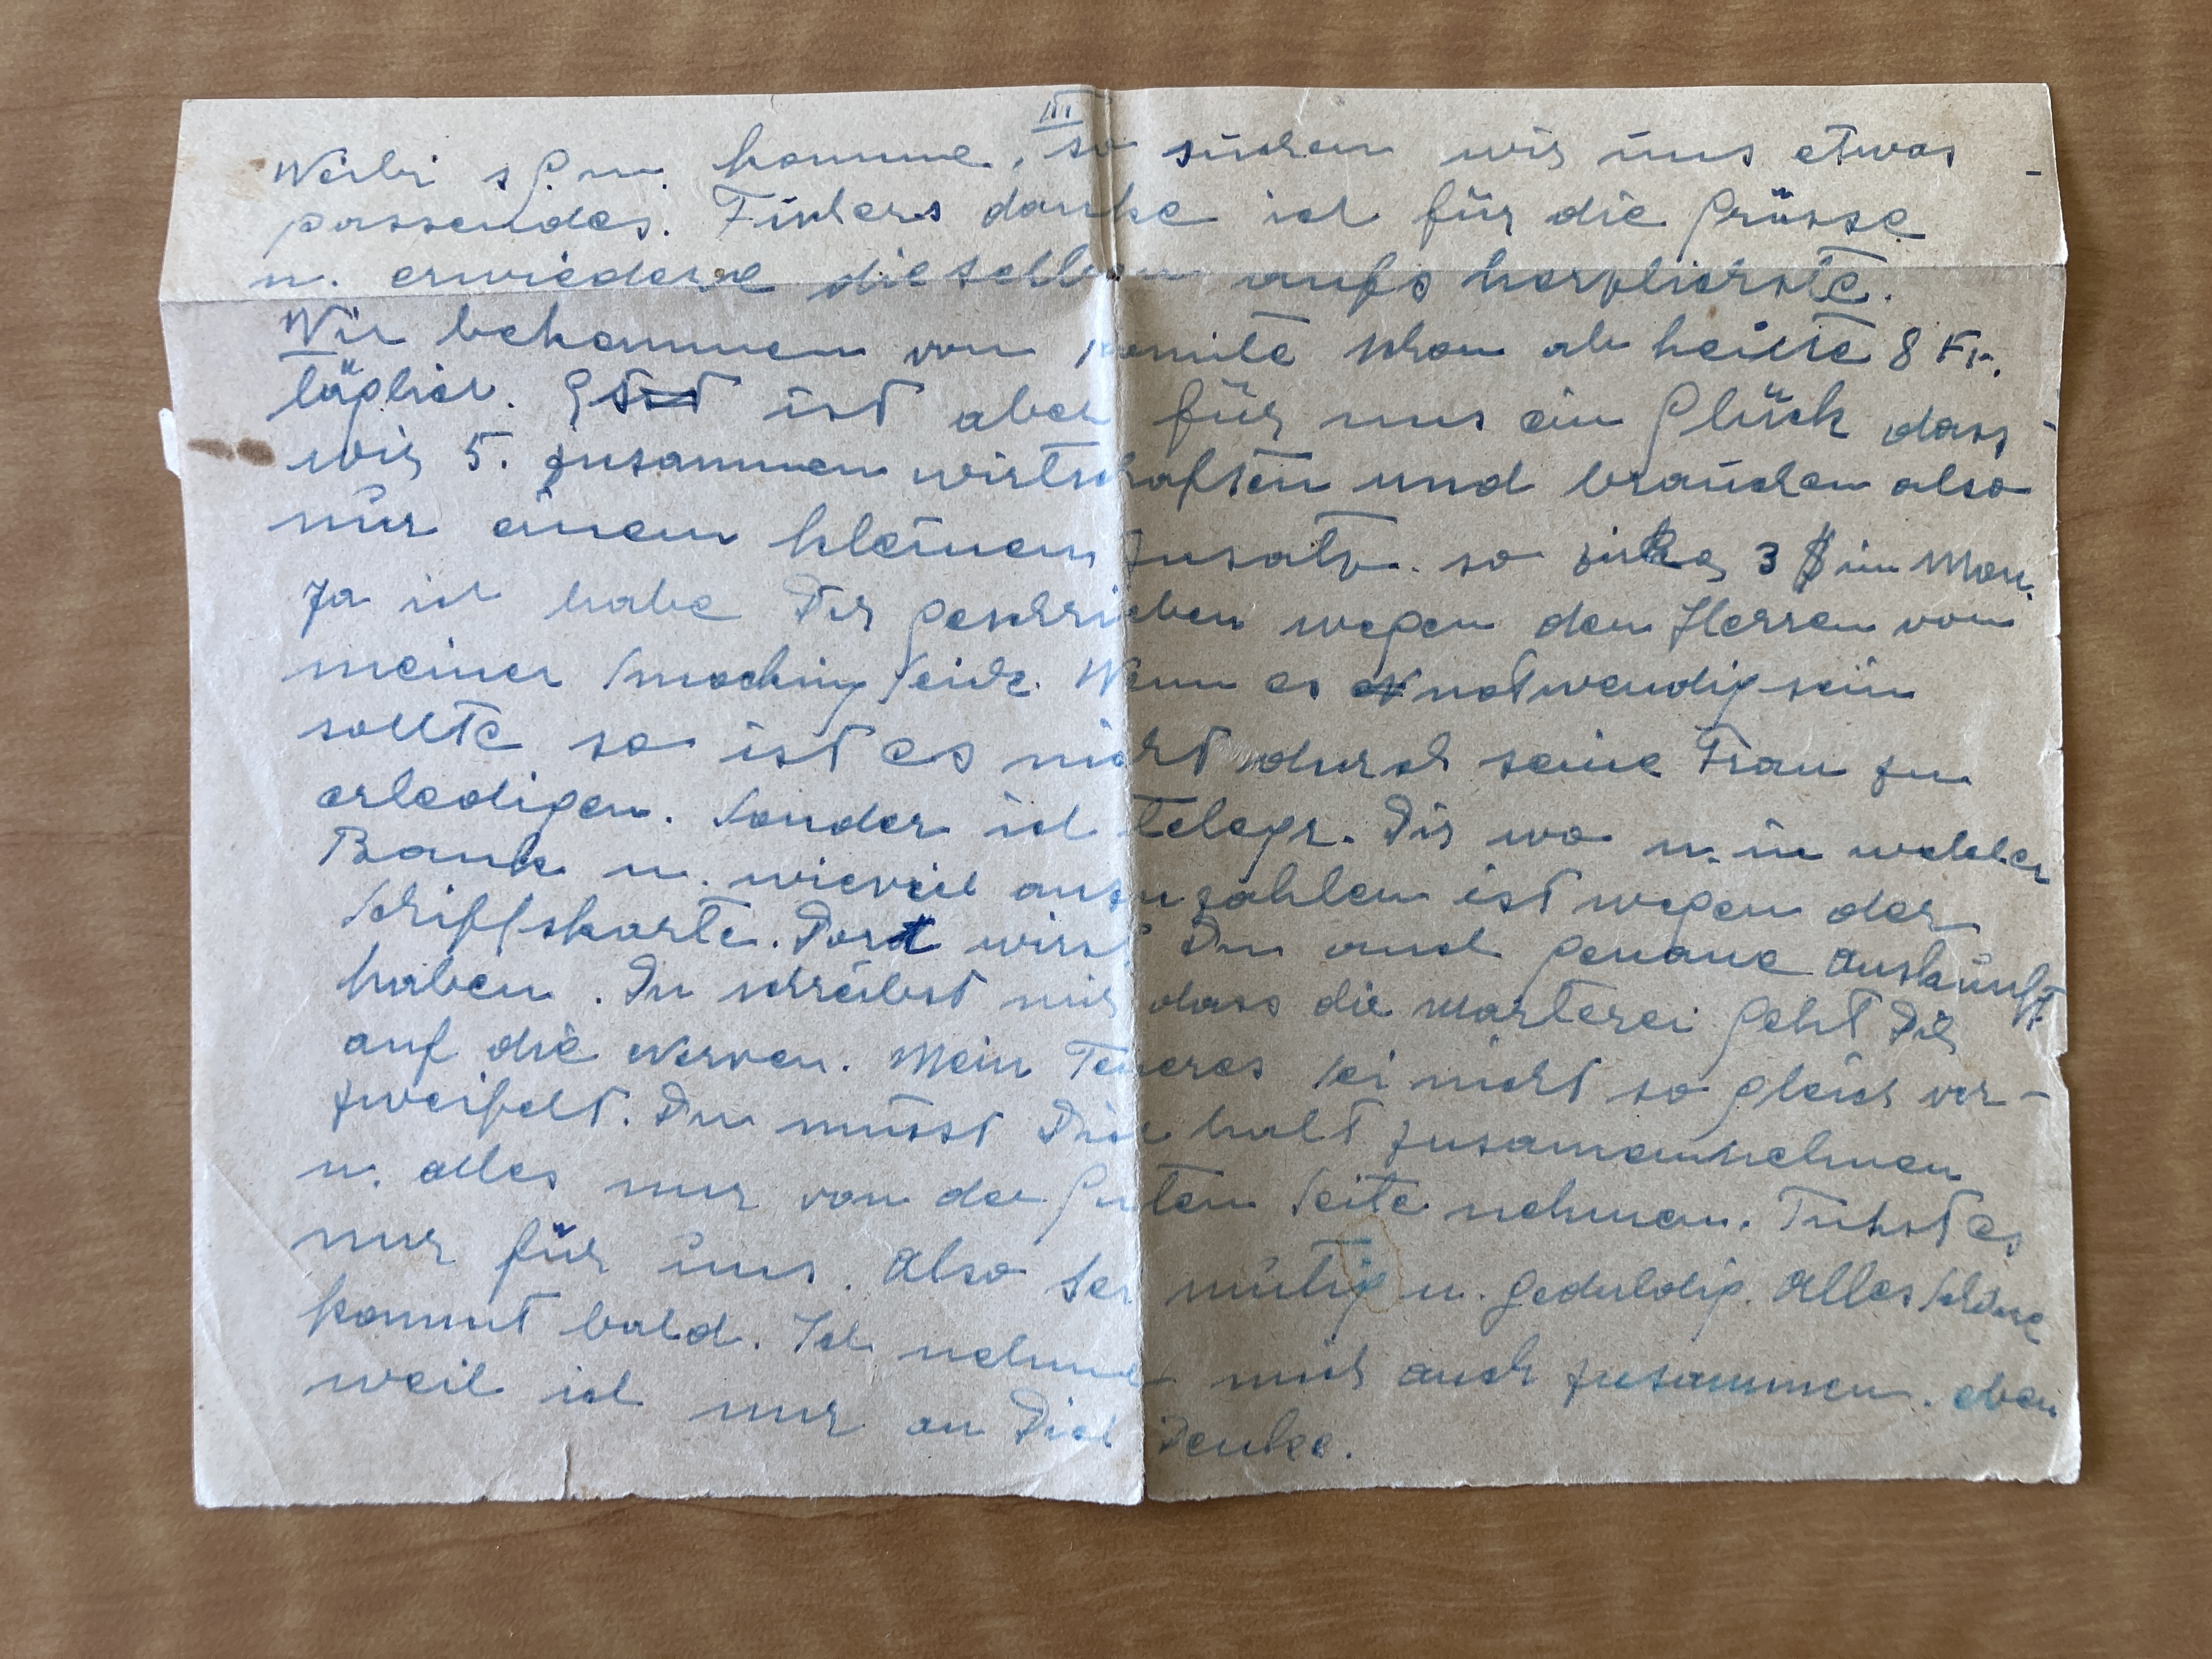 III
Weibi s G. w. komme, so suchen wir uns etwas
passendes. Finkers danke ich für die Grüsse
u. erwiedere dieselben aufs herzlichste.
Wir bekommen von Komite schon ab heute 8 Fr.
täglich. ist aber für uns ein Glück dass
wir 5. zusammen wirtschaften und brauchen also
nur einen kleinen Zusatz. so zirka 3 $ im Mon.
Ja ich habe Dir geschrieben wegen den Herren von
meiner Smocking Seide. Wenn es notwendig sein
sollte so ist es nicht durch seine Frau zu
erledigen. Sonder ich telegr. Dir wo u. in welcher
Bank u. wieviel anzuzahlen ist wegen der
Schiffskarte. Dort wirst Du auch genaue Auskunft
haben. Du schreibst mir dass die Marterei geht Dir
auf die Nerven. Mein Teueres sei nicht so gleich ver-
zweifelt. Du musst Dich halt zusamennehmen
u. alles nur von der guten Seite nehmen. Tuhst es
nur für uns. Also sei mutig u. geduldig. Alles Schöne
kommt bald. Ich nehme mich auch zusammen. eben
weil ich nur an Dich Denke.